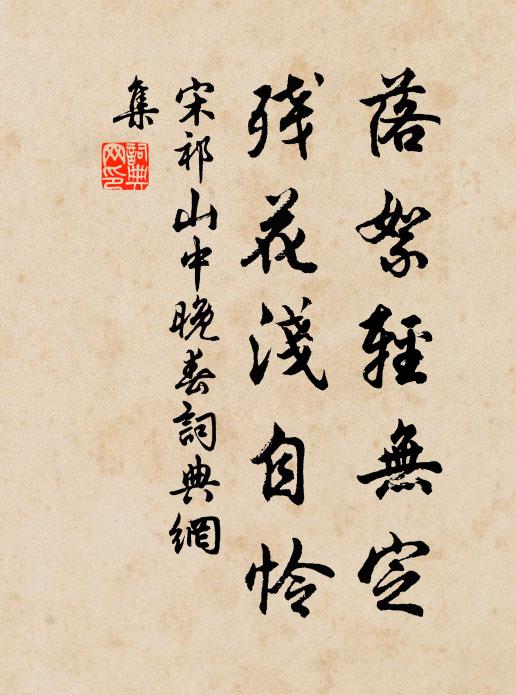 落絮輕無定
残花淺自怜
宋祁山中晚春詞典網
集
詞典
网印